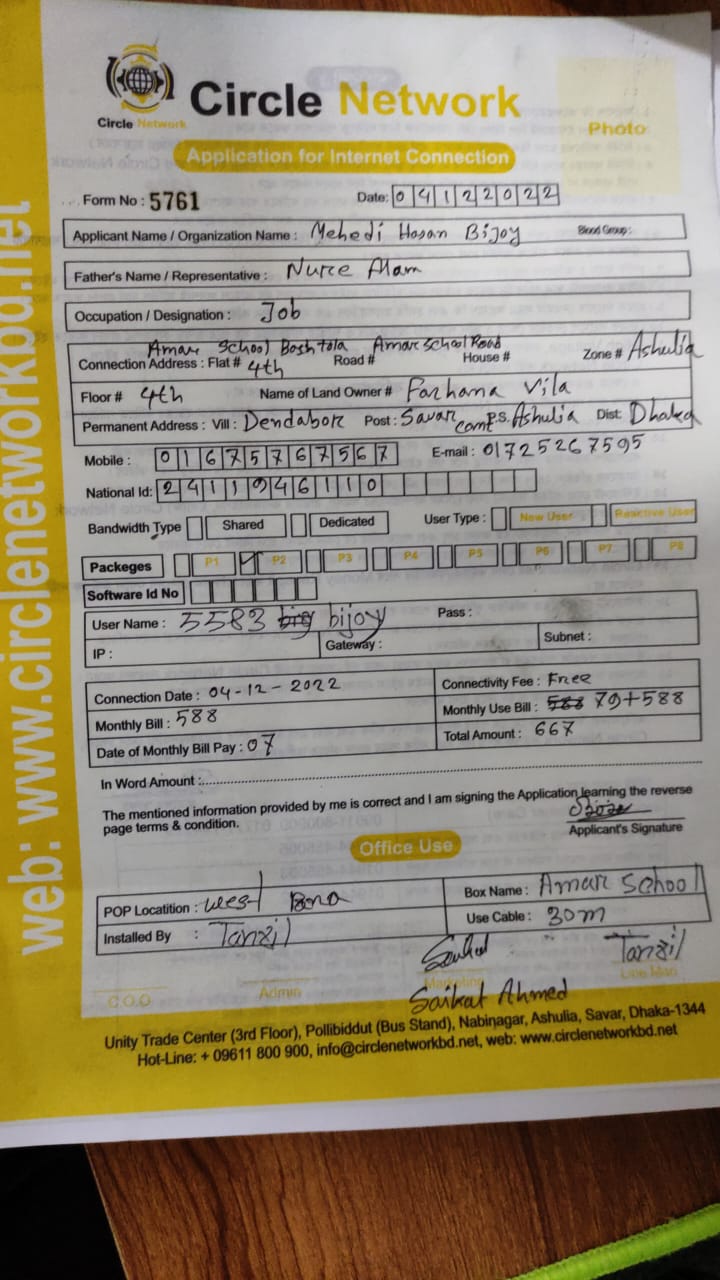 Circle Network
Circle Network
Photo
Application for Internet Connection
Form No : 5761 Date: 04122022
Applicant Name / Organization Name : Mehedi Hasan Bijoy Blood Group :
Father's Name / Representative : Nurce Alam
Occupation / Designation : Job
Amar School Boshtola Amar School Road
Connection Address : Flat # 4th Road # House # Zone # Ashulia
Floor # 4th Name of Land Owner # Farhana Vila
Permanent Address : Vill : Dendabor Post : Savar cant P.S. Ashulia Dist: Dhaka
Mobile : 01675767567 E-mail : 01725267595
National Id: 2411946110
Bandwidth Type Shared Dedicated User Type : New User Reactive User
Packeges P1 P2 P3 P4 P5 P6 P7 P8
Software Id No
User Name : 5583 big bijoy Pass :
IP : Gateway : Subnet :
Connection Date : 04-12-2022 Connectivity Fee : Free
Monthly Bill : 588 Monthly Use Bill : 588 79+588
Date of Monthly Bill Pay : 07 Total Amount : 667
In Word Amount :
The mentioned information provided by me is correct and I am signing the Application learning the reverse
page terms & condition.
Applicant's Signature
Office Use
POP Locatition : west Box Name : Amar School
Installed By : Tanzil Use Cable : 30m
Tanzil
C.O.O Admin Marketing Line Man
Saikat Ahmed
Unity Trade Center (3rd Floor), Pollibiddut (Bus Stand), Nabinagar, Ashulia, Savar, Dhaka-1344
Hot-Line: + 09611 800 900, info@circlenetworkbd.net, web: www.circlenetworkbd.net
web: www.circlenetworkbd.net